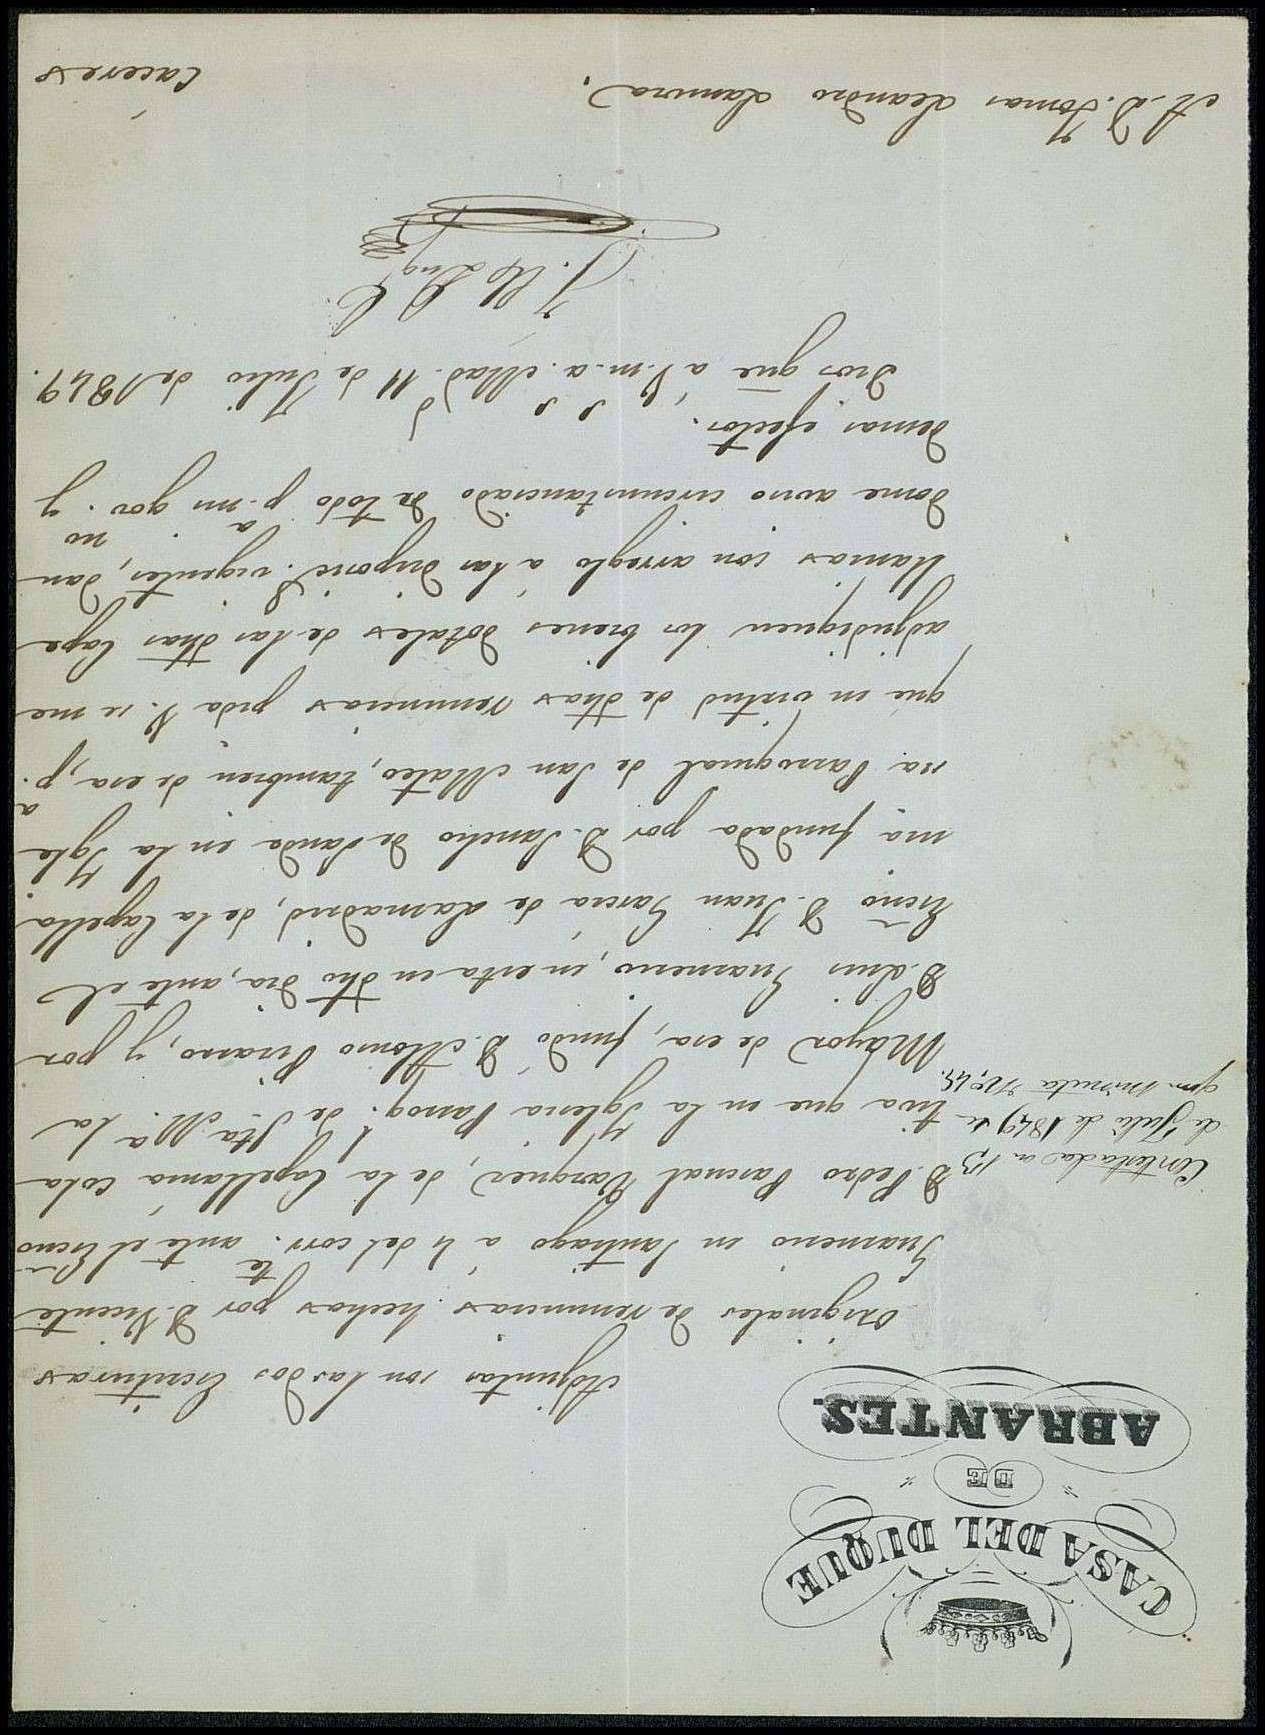 CASA DEL DUQUE
DE
ABRANTES.
Adjuntas son las dos Escrituras
originales de renuncias hechas por D. Vicente
Guarnerio en Santiago á 4 del corr.te ante el Escno
D. Pedro Pascual Vazquez, de la Capellania cola
tiva que en la Yglesia Parroq.l de Sta. Ma. la
Mayor de esa, fundó D. Alonso Pizarro, y por
D. Luis Guarnerio, en esta en dho dia, ante el
Escno D. Juan Garcia de Lamadrid, de la Capella
nia fundada por D. Sancho de Sande en la Ygle
sia Parroquial de San Mateo, tambien de esa, p.a
que en virtud de dhas renuncias pida V. se me
adjudiquen los bienes dotales de las dhas Cape
llanias con arreglo á las disposic.s vigentes, dan
dome aviso circunstanciado de todo p.a mi gov.no y
demas efectos.
Dios gue á V. m.s a.s Mad.d 11 de Julio de 1849.
A D. Tomas Leandro Lamora.
Cáceres
Contestada en 13
de Julio de 1849 se
gun minuta Nº. 45.